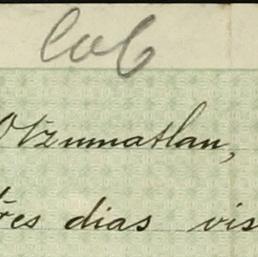 Cob
Otzumatlan,
tres dias vis